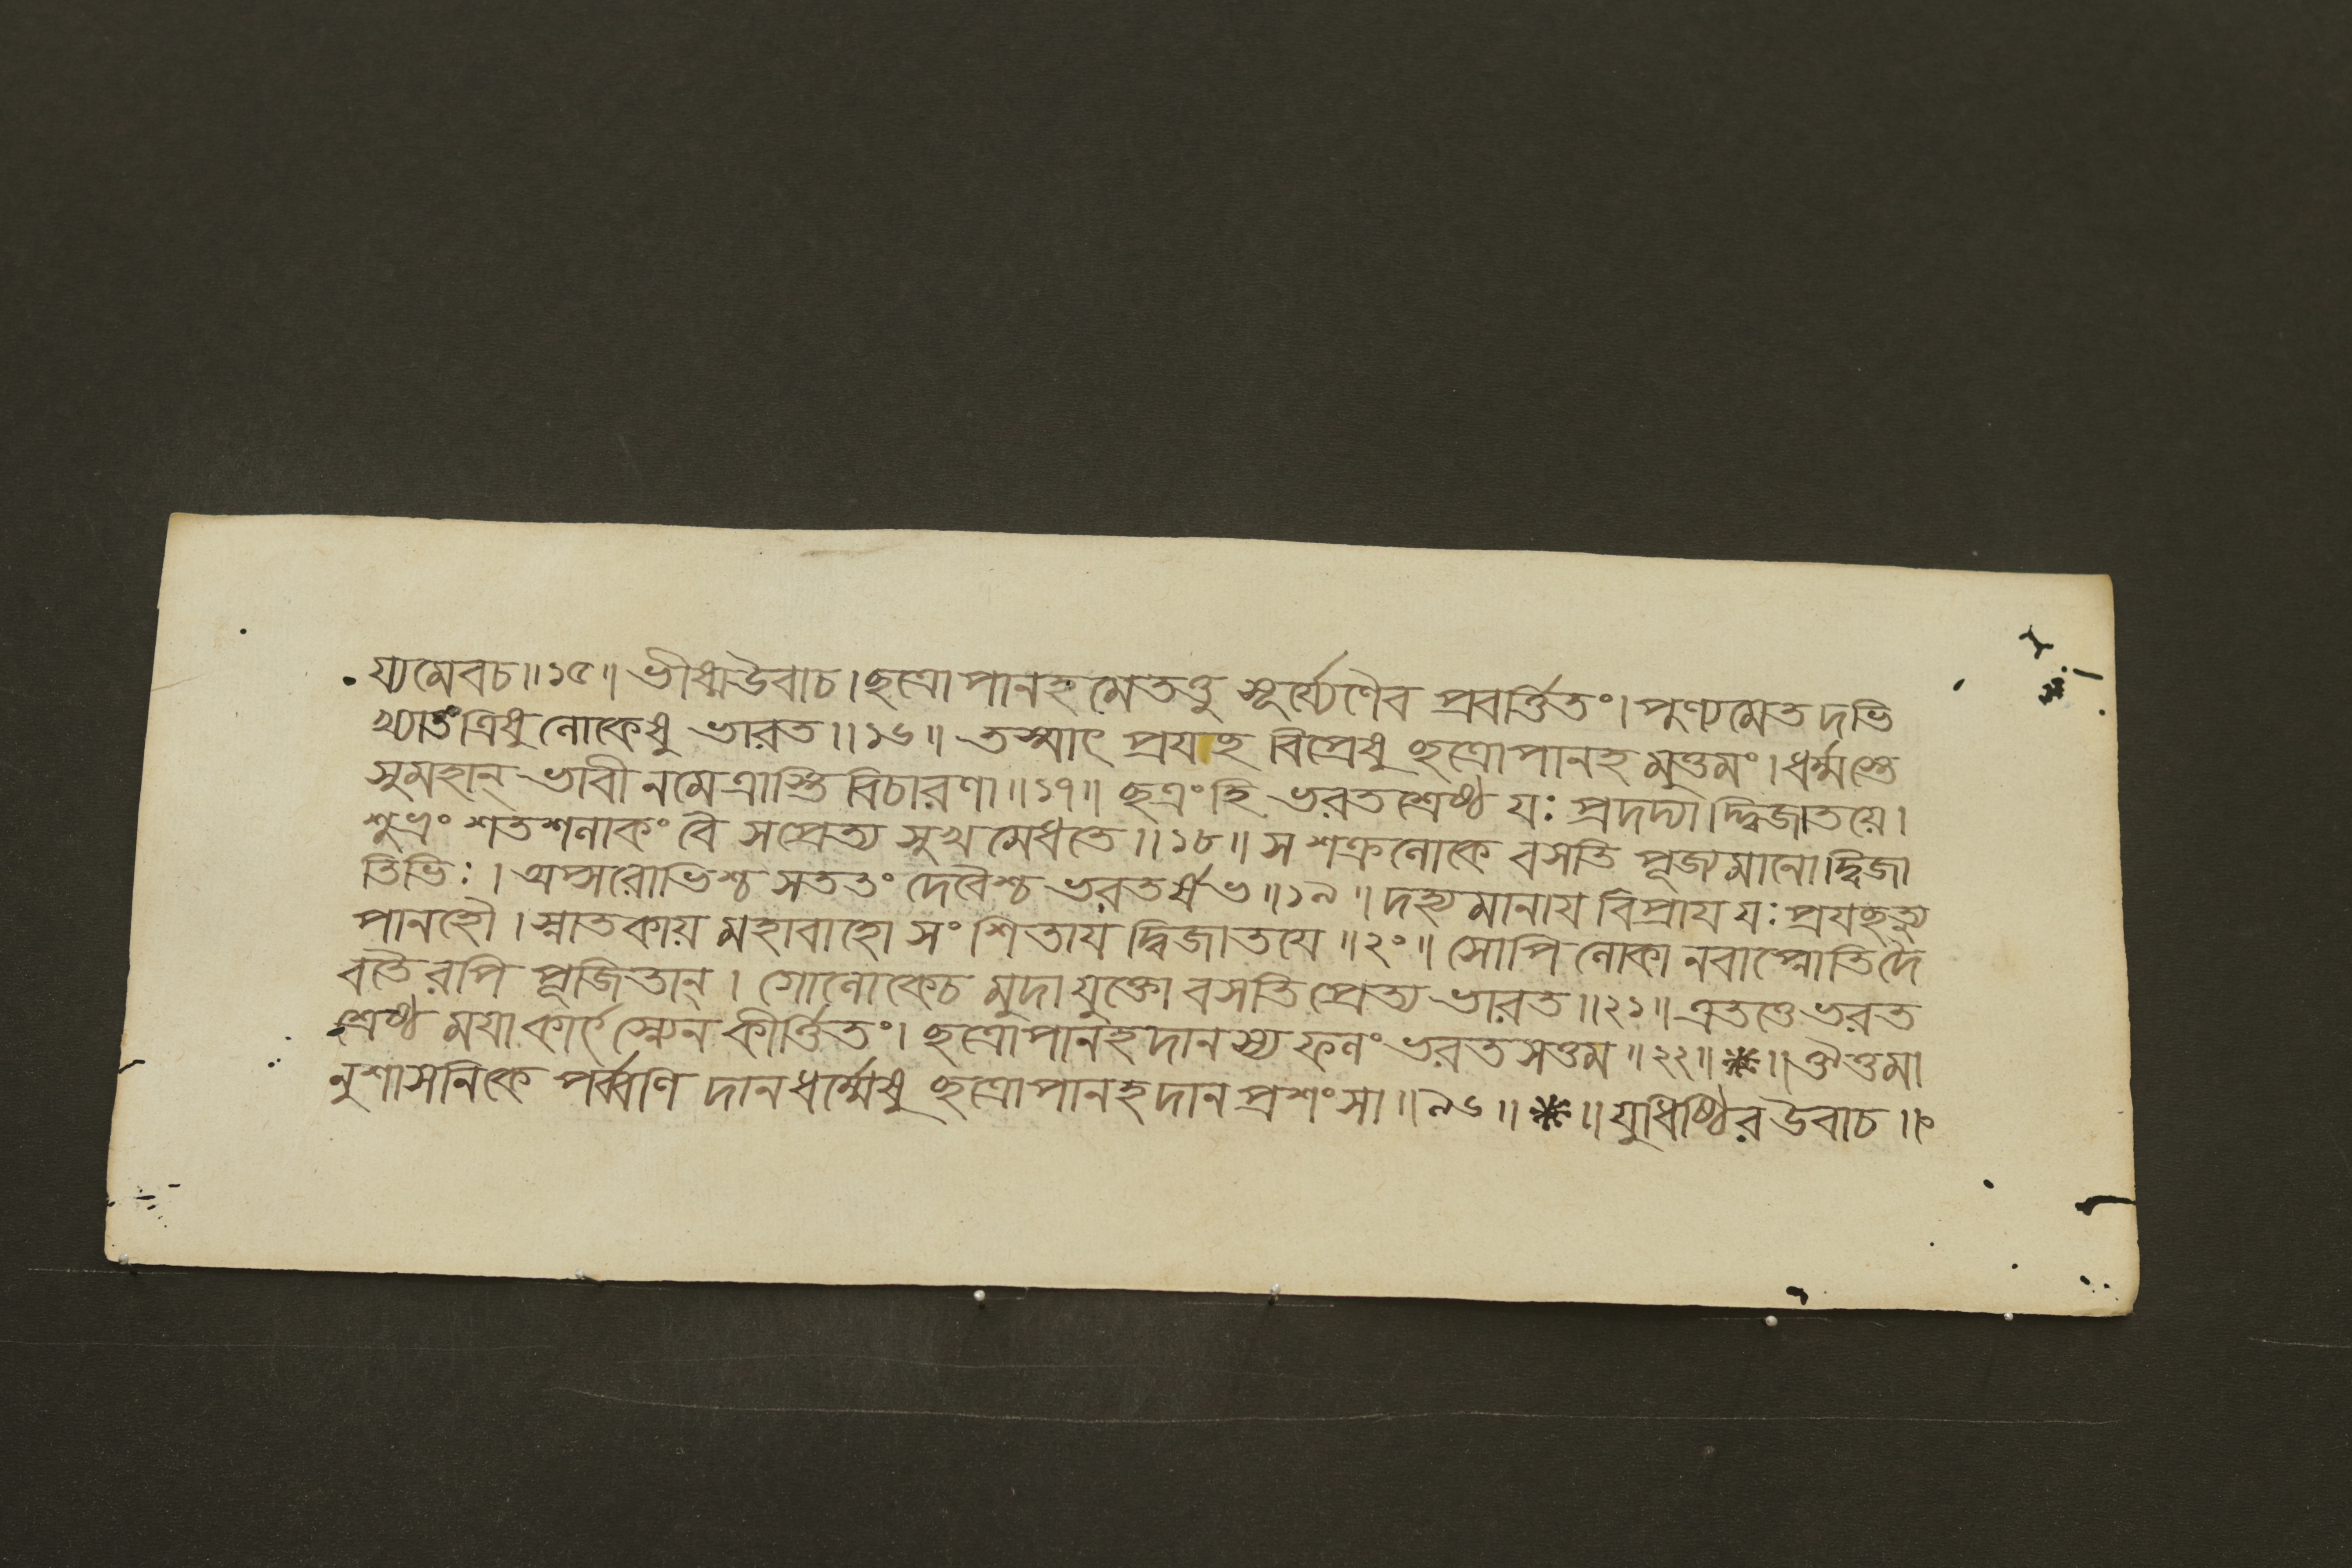 য্যমেবচ॥১৫॥ ভীষ্মউবাচ।ছত্রোপানহমেতত্তু সূর্য্যেণৈব প্রবর্ত্তিতং।পুণ্যমেতদভি
খ্যাতংত্রিষু লোকেষু ভারত॥১৬॥ তস্মাৎ প্রযচ্ছ বিপ্রেষু ছত্রোপানহমুত্তমং।ধর্ম্মস্তে
সুমহান্ ভাবী নমেত্রাস্তি বিচারণা॥১৭॥ ছত্রংহি ভরতশ্রেষ্ঠ যঃ প্রদদ্যাদ্দ্বিজাতয়ে।
শুভ্রং শতশলাকং বৈ সপ্রেত্য সুখমেধতে॥১৮॥ স শক্রলোকে বসতি পূজ্যমানোদ্বিজা
তিভিঃ। অপ্সরোভিশ্চ সততং দেবৈশ্চ ভরতর্ষভ॥১৯॥ দহ্যমানায বিপ্রায যঃ প্রযচ্ছত্যু
পানহৌ। স্নাতকায় মহাবাহো সংশিতায দ্বিজাতযে॥২০॥ সোপি লোকানবাপ্নোতিদৈ
বতৈরপি পূজিতান্। গোলোকেচ মুদাযুক্তো বসতি প্রেত্য ভারত॥২১॥ এতত্তেভরত
শ্রেষ্ঠ মযাকার্ৎস্ন্যেন কীর্ত্তিতং। ছত্রোপানহদানস্য ফলং ভরতসত্তম॥২২॥*॥ ঔত্তমা
নুশাসনিকে পর্ব্বণি দানধর্ম্মেষু ছত্রোপানহদানপ্রশংসা॥৯৬॥*॥যুধিষ্ঠির উবাচ॥